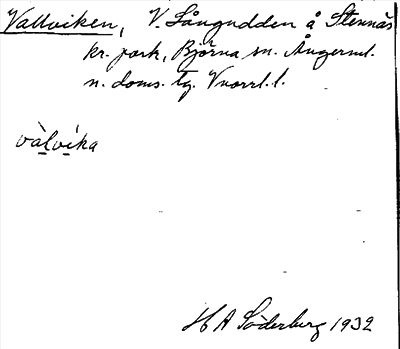 Vallviken, V. Långudden å Stennäs
kr. park, Björna sn. Ångerml.
n. doms. tg. Vnorrl. l.
vàlvika
H A Söderberg 1932